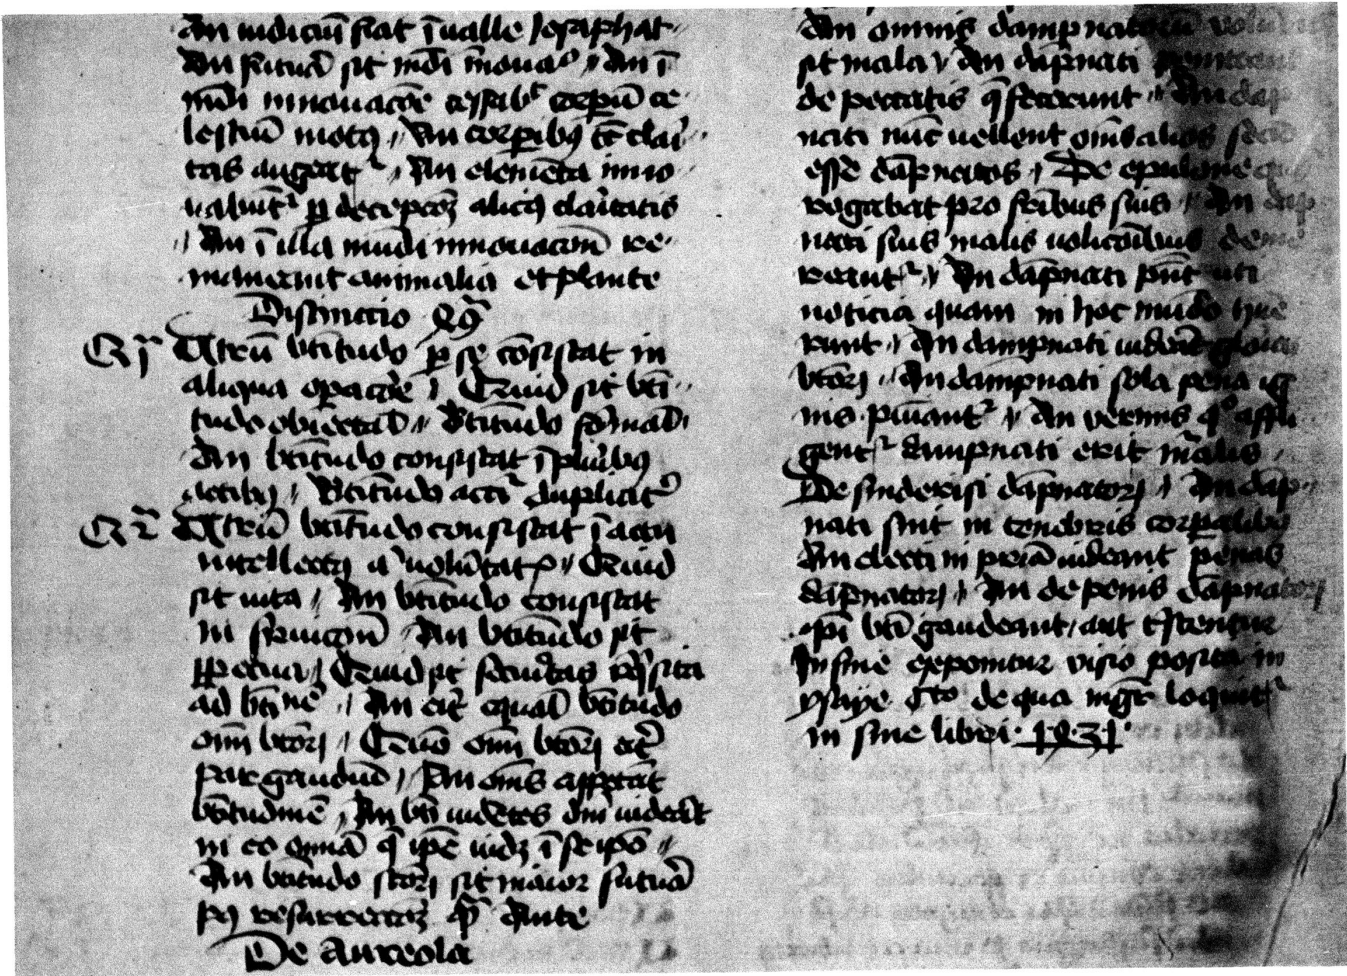 An iudiciū fiat ī ualle Iosaphat
An futurā sit mūdi īnouaᵒ // An ī
mūdi innouacōe cessabᵗ corpū ce
lestiū motꝯ // An corꝑibꝯ cē clari
tas augeat᷑ // An elementa inno
uabūt᷑ ꝑ decepcoꝫ alicꝯ claritatis
// An ī illa mūdi innouacōne re
manerint animalia et plante
Distinctio
Utrū btītudo ꝑ se cōsistat in
aliqua oꝑacōe // Quid sit btī
tudo obiectaƚ // Btītudo formaƚ
An btītudo consistat ī pluribꝯ
actibꝯ // Btītudo accit᷑ duplicit᷑
Utrū btītudo consistat ī actu
intellectꝯ uƚ uolūtatꝭ // Quid
sit uita // An btītudo consistat
in fruicōne // An btītudo sit
ꝑpetua // Quid sit securitas
ad btīnē // An erit equaƚ btītudo
oīm btōrꝫ // Quō oīm btōrꝫ erit
par gaudiū // An omīs appetāt
btītudinē // An btī uidētes dm̄ uideāt
in eo omīa q̄ ipē uidꝫ ī seipō //
An btītudo sctōrꝫ sit maior futura
pꝯ resurrectōꝫ qᷓ ante
De Aureola
An omnis dampnatorū
sit mala // An dāpnati
de peccatis q̄ fecerunt // An dāp
nati nūc uellent omīs alios
esse dāpnatos // De epulone
rogabat pro fribus suis // An
nati suis malis uolicōibus deme
rent᷑ // An dāpnati pn̄t uti
noticia quam in hoc mūdo hue
runt // An dampnati uideāt gloriā
btōrꝫ // An dampnati sola pena ig
nis puniant᷑ // An vermis qᵒ affli
gent᷑ dampnati erit
De sinderisi dāpnatorꝫ // An dāp
nati sint in tenebris corꝑalibꝯ
An electi in pr̄ia uideant penas
dāpnatorꝫ // An de penis dāpnatorꝫ
ip̄i btī gaudeant / aut tristentur
In fine exponitur visio posita in
ysaye de qua mgr̄ loquit᷑
in fine libri